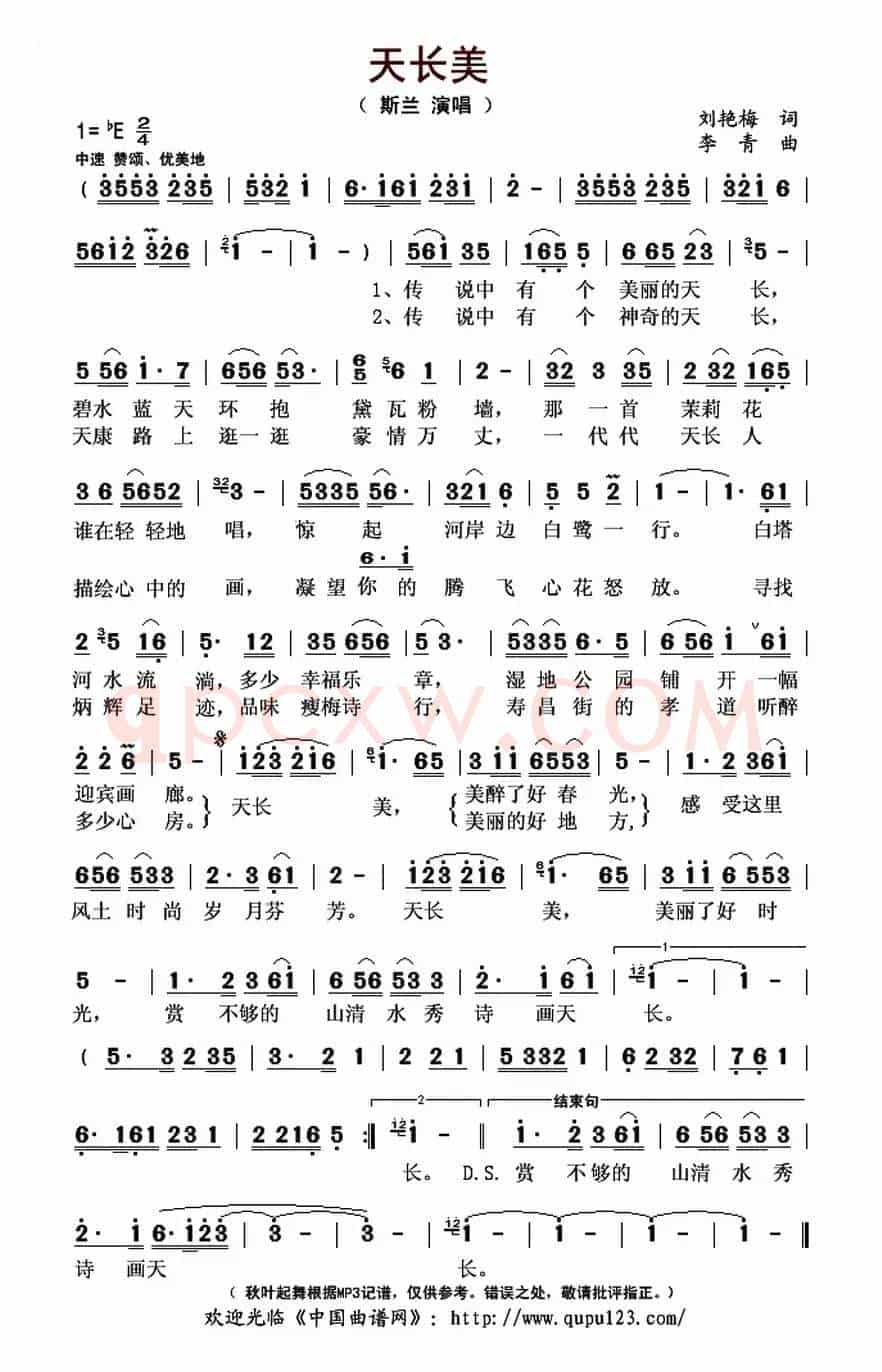 天长美
（ 斯兰 演唱 ）
1= ♭E 2/4
刘艳梅 词
中速 赞颂、优美地
李 青 曲
( 3553 235 | 532 1 | 6· 161 231 | 2 - | 3553 235 | 321 6 |
5612 326 | 12 1 - | 1 - ) | 561 35 | 165 5 | 6 65 23 | 3 5 - |
1、传 说中 有 个 美丽的天 长，
2、传 说中 有 个 神奇的天 长，
5 56 1· 7 | 656 53· | 6/5 5 6 1 | 2 - | 32 3 35 | 2 32 165 |
碧水 蓝 天 环 抱 黛瓦粉 墙， 那 一首 茉莉 花
天康 路 上 逛一逛 豪 情万 丈， 一 代代 天长 人
3 6 5652 | 32 3 - | 5335 56· | 321 6 | 5 5 2 | 1 - | 1· 61 |
谁在轻 轻地 唱， 惊 起 河岸 边 白 鹭 一 行。 白塔
6· 1
描绘心 中的 画， 凝 望 你 的 腾 飞 心 花 怒 放。 寻找
2 3 5 16 | 5· 12 | 35 656 | 5 3· | 5335 6· 5 | 6 56 1 ∨ 61 |
河 水 流 淌，多少 幸福乐 章， 湿 地 公 园 铺 开 一幅
炳 辉 足 迹，品味 瘦梅诗 行， 寿 昌 街 的 孝 道 听醉
qpcxw.com
2 2 6 | 5 - | 123 216 | 6 1· 65 | 3 11 6553 | 5 - | 1· 2 361 |
迎宾画 廊。 天长 美， 美醉了好 春 光， 感 受这里
多少心 房。 美丽的好 地 方,
656 533 | 2· 3 61 | 2 - | 123 216 | 6 1· 65 | 3 11 6 553 |
风土 时 尚 岁 月芬 芳。 天长 美， 美丽了好 时
1
5 - | 1· 2 361 | 6 56 53 3 | 2· 1 61 | 12 1 - | 1 - |
光， 赏 不够的 山清 水 秀 诗 画天 长。
( 5· 3 2 35 | 3· 2 1 | 2 2 2 1 | 5 332 1 | 6 2 32 | 7 6 1 |
2 结束句
6· 161 23 1 | 2 216 5 :‖ 12 1 - ‖ 1· 2 361 | 6 56 53 3 |
长。 D.S. 赏 不够的 山清 水 秀
2· 1 6·123 | 3 - | 3 - | 12 1 - | 1 - | 1 - ‖
诗 画天 长。
（ 秋叶起舞根据MP3记谱，仅供参考。错误之处，敬请批评指正。）
欢迎光临《中国曲谱网》：http://www.qupu123.com/